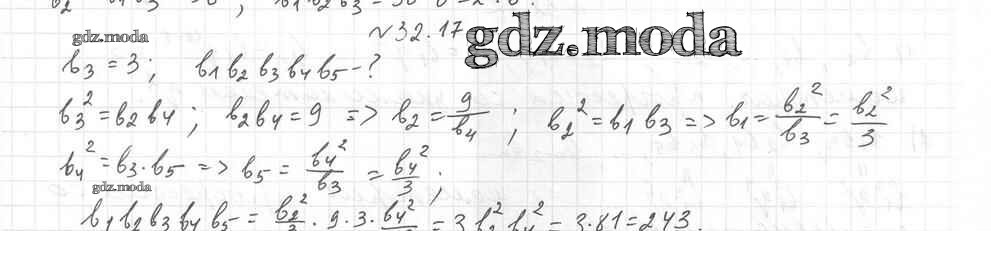 №32.17
gdz.moda
gdz.moda
b₃ = 3; b₁b₂b₃b₄b₅-?
b₃² = b₂b₄; b₂b₄ = 9 => b₂ = 9/b₄; b₂² = b₁b₃ => b₁ = b₂²/b₃ = b₂²/3
b₄² = b₃·b₅ => b₅ = b₄²/b₃ = b₄²/3;
gdz.moda
b₁b₂b₃b₄b₅ = b₂²/3 · 9·3· b₄²/3 = 3b₂²b₄² = 3·81 = 243.